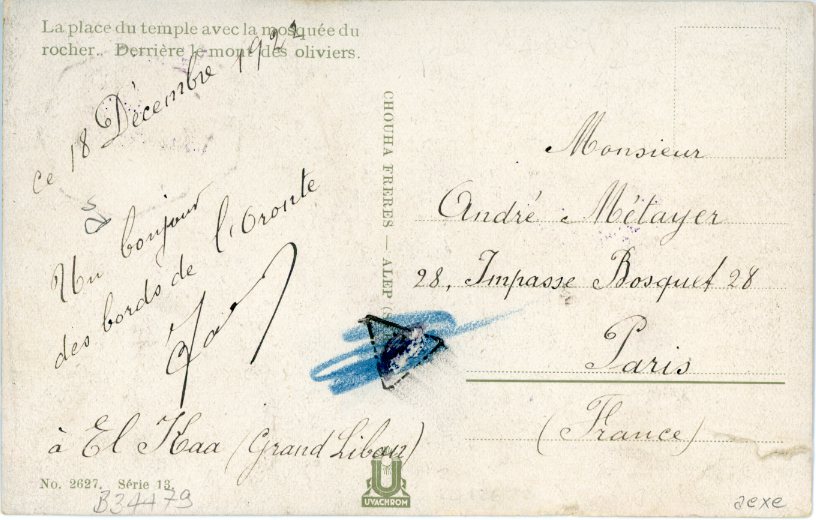 La place du temple avec la mosquée du
rocher. Derrière le mont des oliviers.
Ce 18 Décembre 1922
Un bonjour
des bords de l'Oronte
à El Kaa (Grand Liban)
No. 2627. Série 13.
B34479
CHOUHA FRERES — ALEP (S
UVACHROM
Monsieur
André Métayer
28, Impasse Bosquet 28
Paris
(France)
aexe